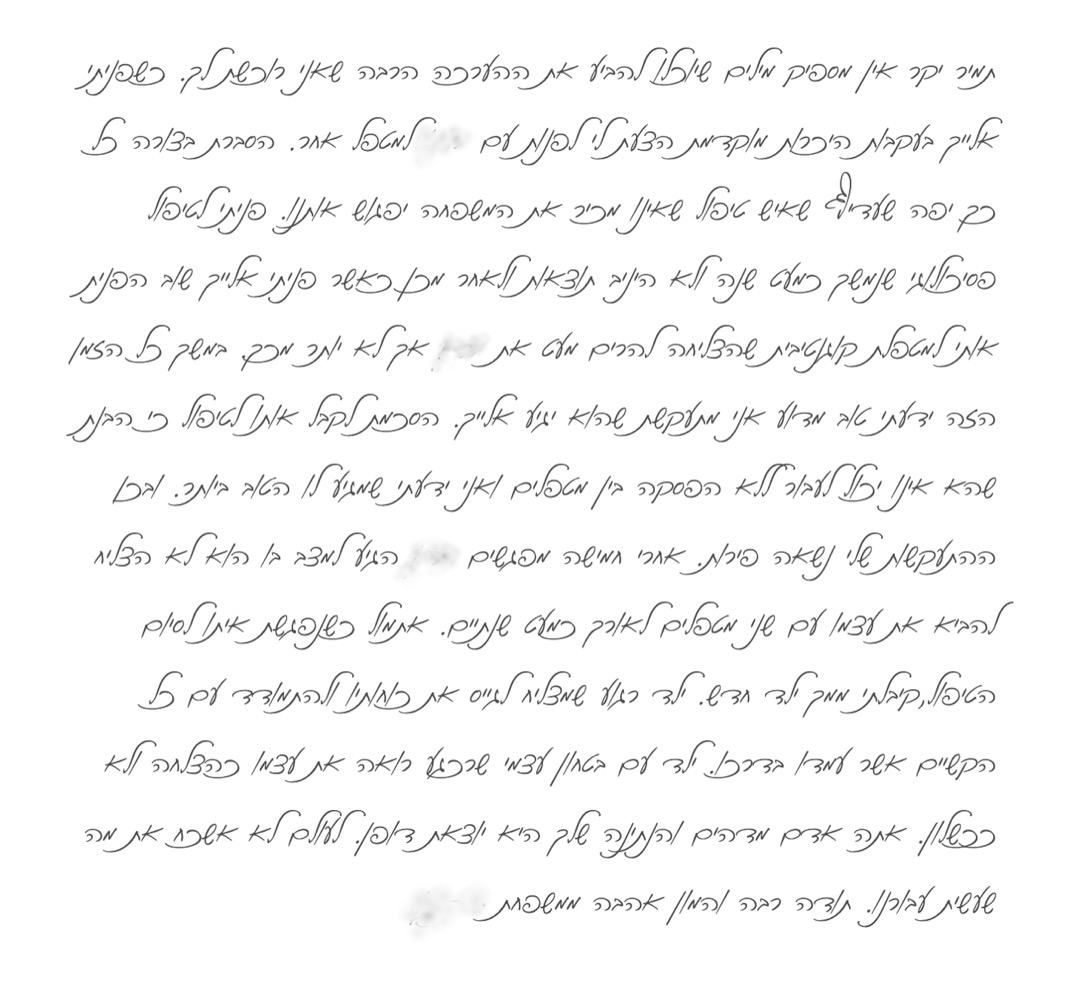 תמיר יקר אין מספיק מילים שיוכלו להביע את ההערכה הרבה שאני רוכשת לך. כשפניתי
אלייך בעקבות היכרות מוקדמת הצעת לי לפנות עם למטפל אחר. הסברת בצורה כל
כך יפה שעדיף שאיש טיפול שאינו מכיר את המשפחה יפגוש אותנו. פניתי לטיפול
פסיכולוגי שנמשך כמעט שנה ולא הניב תוצאות ולאחר מכן כאשר פניתי אלייך שוב הפנית
אותי למטפלת קוגנטיבית שהצליחה להרים מעט את אך לא יותר מכך. במשך כל הזמן
הזה ידעתי טוב מדוע אני מתעקשת שהוא יגיע אלייך. הסכמת לקבל אותו לטיפול כי הבנת
שהוא אינו יכול לעבור ללא הפסקה בין מטפלים ואני ידעתי שמגיע לו הטוב ביותר. ובכן
ההתעקשות שלי נשאה פירות. אחרי חמישה מפגשים הגיע למצב בו הוא לא הצליח
להביא את עצמו עם שני מטפלים לאורך כמעט שנתיים. אתמול כשנפגשת איתו לסיום
הטיפול,קיבלתי ממך ילד חדש. ילד רגוע שמצליח לגייס את כוחותיו ולהתמודד עם כל
הקשיים אשר עמדו בדרכו. ילד עם בטחון עצמי שרכגע רואה את עצמו כהצלחה ולא
ככשלון. אתה אדם מדהים והנתינה שלך היא יוצאת דופן. לעולם לא אשכח את מה
שעשית עבורנו. תודה רבה והמון אהבה ממשפחת